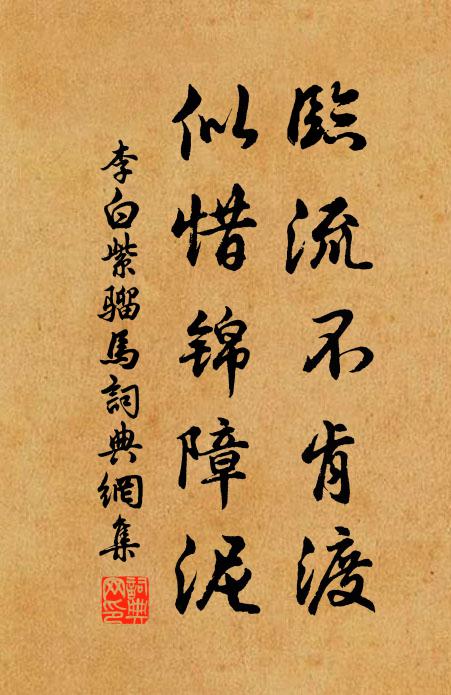 臨流不肯渡
似惜錦障泥
李白紫騮馬詞典網集
詞典網印